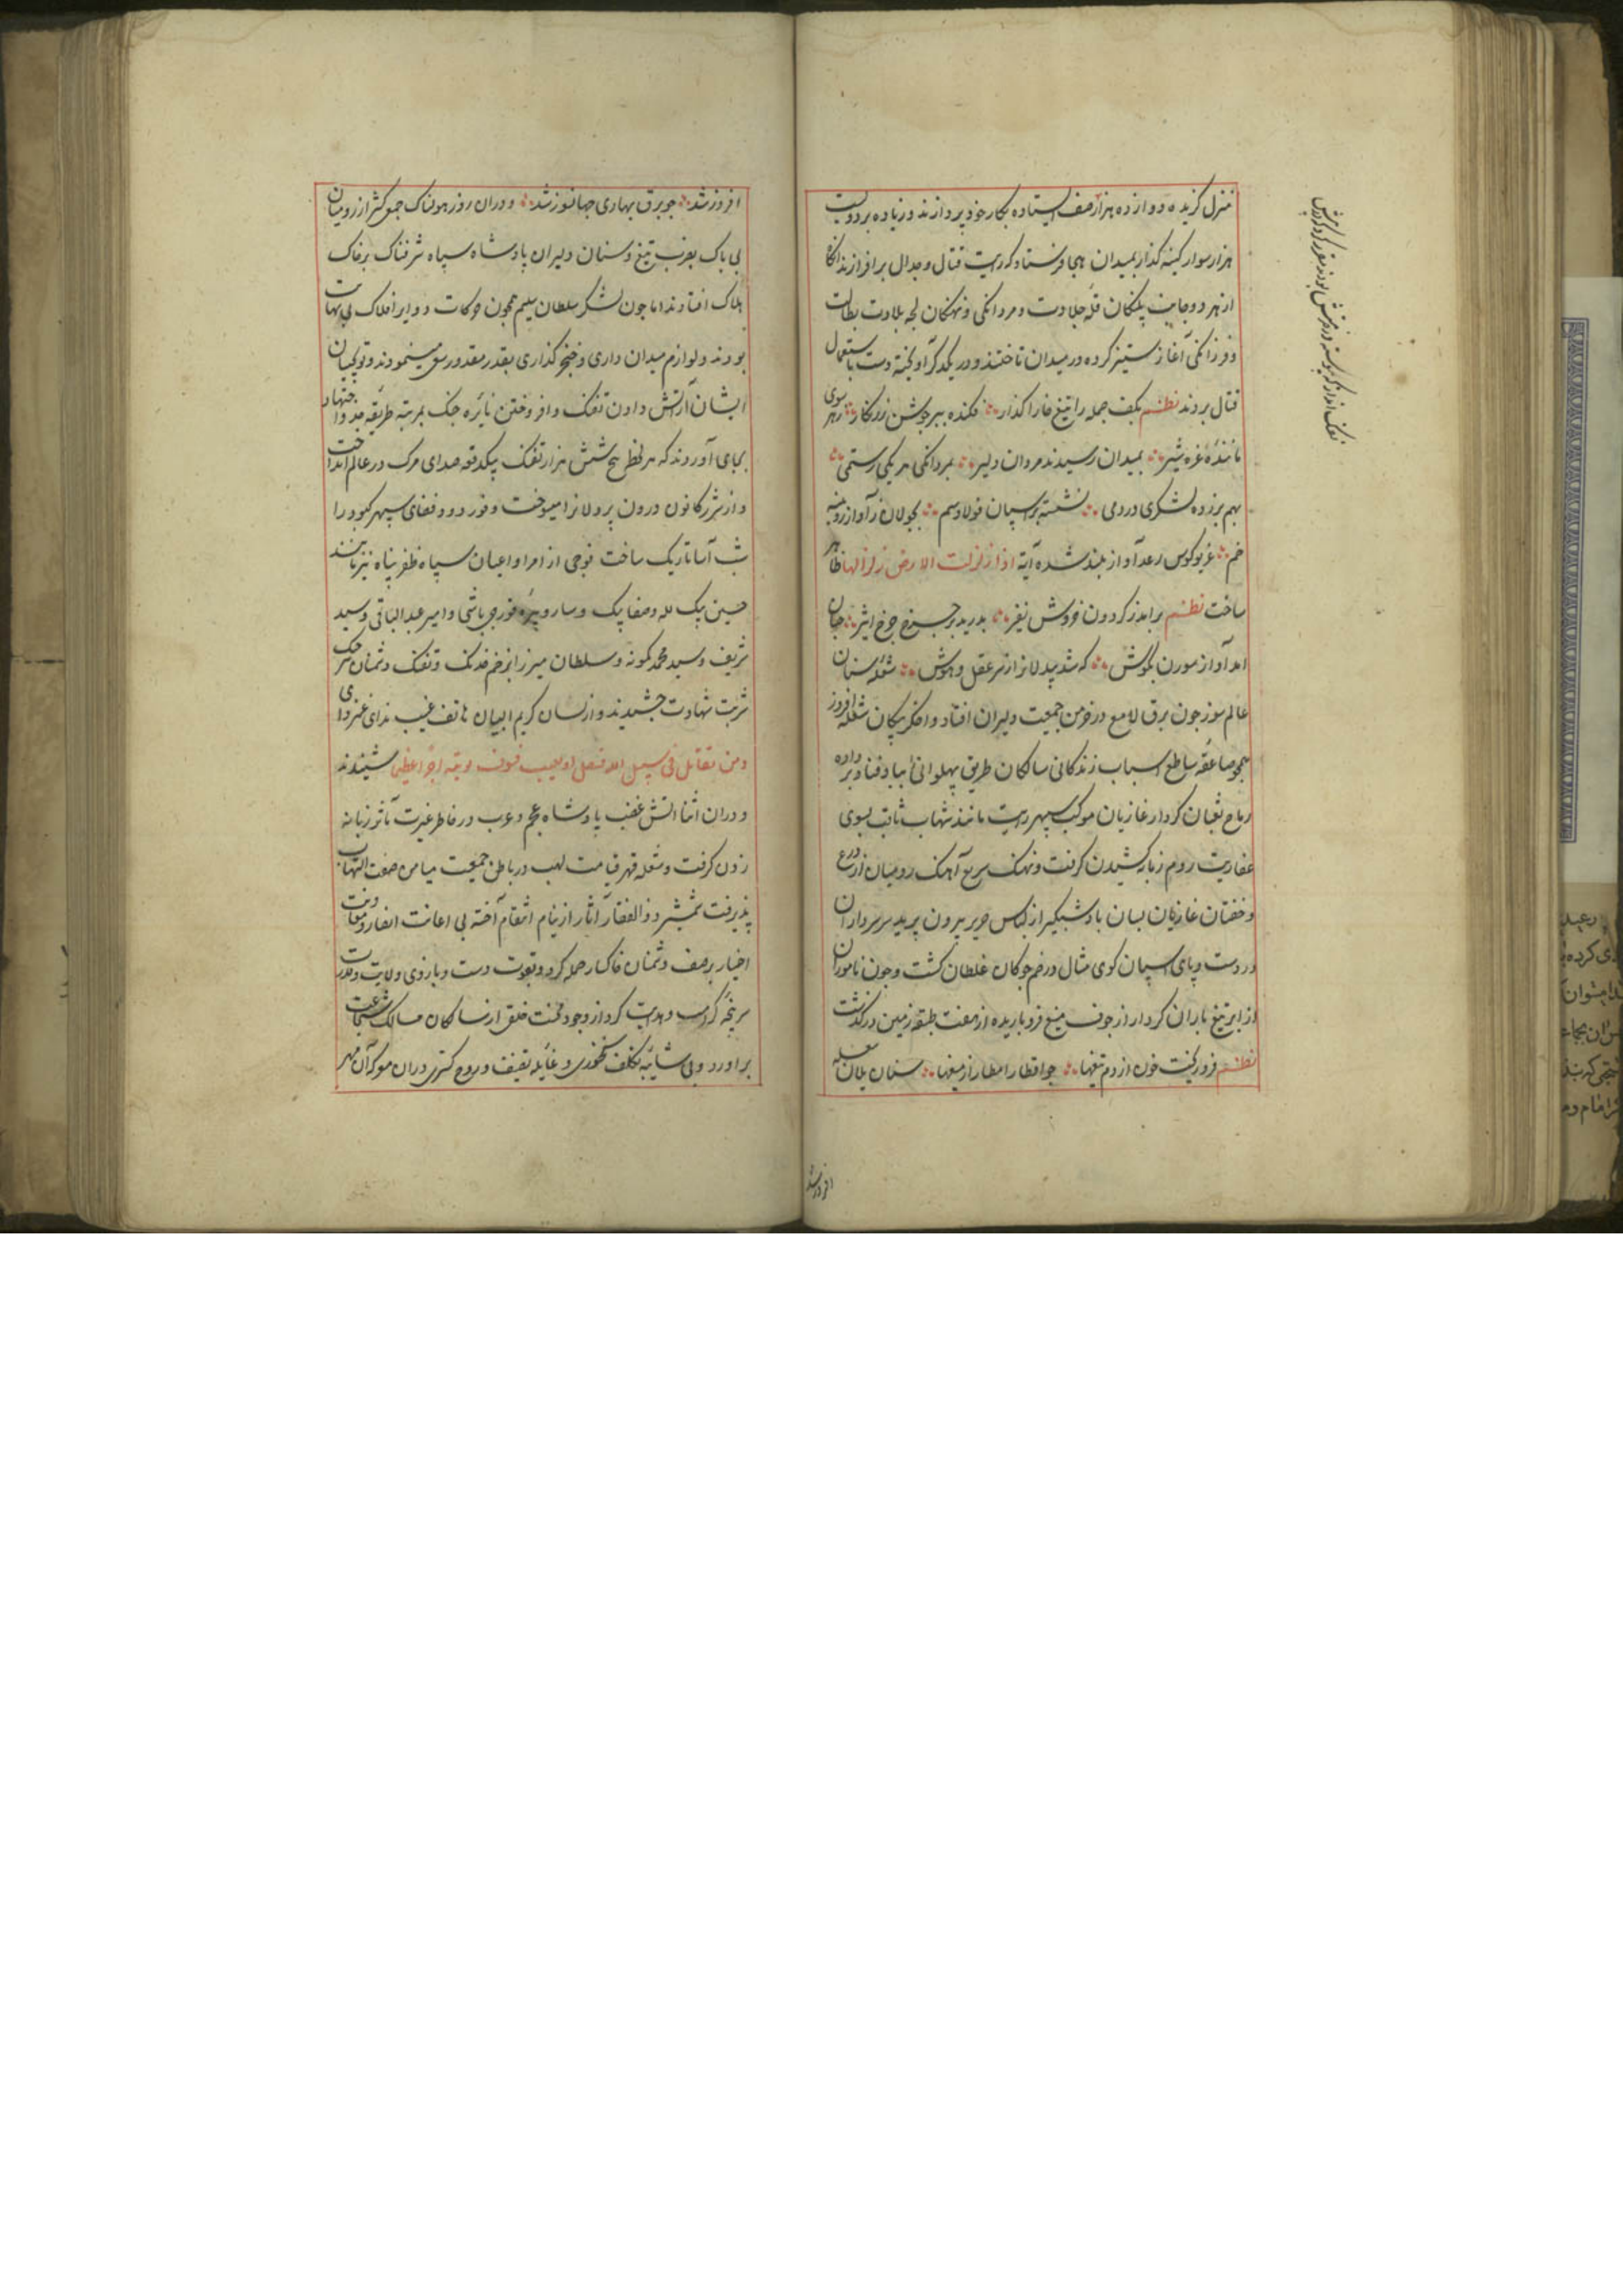 منزل گزیده و دوازده هزار صف ایستاده بکار خود پردازند و زیاده بر دویست
هزار سوار کینه گذار بمیدان هیجا فرستاد که رایت قتال و جدال برافرازند آنگاه
از هر دو جانب پلنگان قله جلادت و مردانگی و نهنگان لجه بلادت بطالت
و فرزانگی آغاز ستیز کرده در میدان تاختند و در یکدیگر آویخته دست باستعمال
قتال بردند نظم بکف جمله را تیغ خارا گذار فکنده ببر جوشن زرنگار ز هر سوی
ماننده غره شیر بمیدان رسیدند مردان دلیر بمردانگی هر یکی رستمی
بهم برزده لشکری در دمی نشسته بر اسپان فولاد سم بجولان در آواز رویینه
خم غریو کوس رعد آواز بلند شده آیة اذا زلزلت الارض زلزالها ظاهر
ساخت نظم برآمد ز گردون خروش نفیر بدرید برجیس چرخ اثیر چنان
آمد آواز سورن بگوش که شد پردلانرا ز سر عقل و هوش شعله سنان
عالم سوز چون برق لامع در خرمن جمعیت دلیران افتاد و اخگر پیکان شعله افروز
همچو صاعقه ساطع اسباب زندگانی سالکان طریق پهلوانی را بباد فنا بر داده
رماح ثعبان کردار غازیان موکب سپهر رایت مانند شهاب ثاقب بسوی
عفاریت روم زبانه کشیدن گرفت و نهنگ سریع آهنگ رومیان از درع
و خفتان غازیان بسان باد شبگیر از لباس حریر بیرون پرید سر سرداران
در دست و پای اسپان گوی مثال در خم چوگان غلطان گشت و چون ناموران
از ابر تیغ باران کردار از جوف میغ فرو باریده از هفت طبقه زمین درگذشت
نظم فرو ریخت خون از دم تیغها چو اقطار امطار از میغها سنان یلان شعله
افروز شد
افروز شد چو برق بهاری جهانسوز شد و در آن روز هولناک جمع کثیر از رومیان
بی باک بضرب تیغ و سنان دلیران پادشاه سپاه شرفناک بر خاک
هلاک افتادند اما چون لشکر سلطان سلیم همچون حرکات دوایر افلاک بی نهایت
بودند و لوازم میدان داری و خنجر گذاری بقدر مقدور سعی مینمودند و توپچیان
ایشان آتش دادن تفنگ و افروختن نایره جنگ بمرتبه طریقه جد و اجتهاد
بجای آوردند که هر لحظه پنج شش هزار تفنگ بیکدفعه صدای مرگ در عالم انداخت
و از شرر کانون درون پردلانرا میسوخت و فور دود فضای سپهر کبود را
شب آسا تاریک ساخت فوجی از امرا و اعیان سپاه ظفر پناه نیز مانند
حسین بیک لله و صفا بیک و سارو پیره قورچی باشی و امیر عبدالباقی و سید
شریف و سید محمد کمونه و سلطان میرزا بزخم خدنگ و تفنگ دشمنان
شربت شهادت چشیدند و از لسان کریم البیان هاتف غیب ندای
ومن یقاتل فی سبیل الله فیقتل او یغلب فسوف نؤتیه اجرا عظیما شنیدند
و در آن اثنا آتش غضب پادشاه عجم و عرب در خاطر غیرت مآثر زبانه
زدن گرفت و شعله قهر قیامت لهب در باطن جمعیت میامن صفت التهاب
پذیرفت شمشیر ذوالفقار آثار از نیام انتقام آخته بی اعانت انصار و معاونت
اخیار بر صف دشمنان خاکسار حمله کرد و بقوت دست و بازوی ولایت و
سرپنجه کرامت و هدایت گرد از وجود خلق از سالکان مسالک شجاعت
برآورد و بی شایبه تکلف سخنوری و غایله در آن معرکه آن